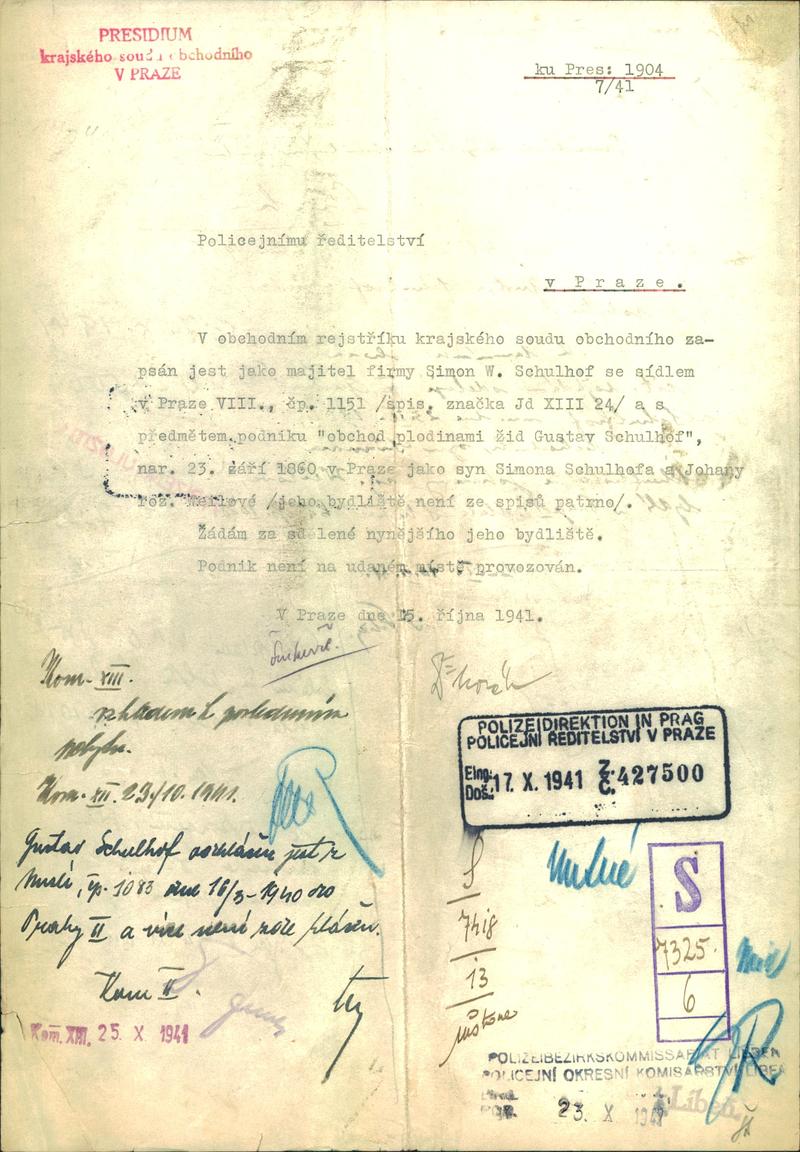 PRESIDIUM
krajského soudu obchodního
V PRAZE
ku Pres: 1904
7/41
Policejnímu ředitelství
v Praze.
V obchodním rejstříku krajského soudu obchodního za-
psán jest jako majitel firmy Simon W. Schulhof se sídlem
v Praze VIII., čp. 1151 /spis. značka Jd XIII 24/ a s
předmětem podniku "obchod plodinami žid Gustav Schulhof",
nar. 23. září 1860 v Praze jako syn Simona Schulhofa a Johany
roz. /jeho bydliště není ze spisů patrno/.
Žádám za sdělené nynějšího jeho bydliště.
Podnik není na udaném místě provozován.
V Praze dne 15. října 1941.
Kom. XIII.
vzhledem k
Kom. 23/10. 1941.
POLIZEIDIREKTION IN PRAG
POLICEJNÍ ŘEDITELSTVÍ V PRAZE
Eing.
Doš.: 17 X. 1941 Z. Č. 427500
Gustav Schulhof jest z
Nuslí, čp. 1083 dne 16/3-1940 do
Prahy II a více není zde hlášen.
Kom II.
Kom. XIII. 25 X 1941
S
7418
13
Nutné
S
7325
6
R
POLIZEIBEZIRKSKOMMISSARIAT LIEBEN
POLICEJNÍ OKRESNÍ KOMISAŘSTVÍ LIBEŇ
23 X 1941
Libeň